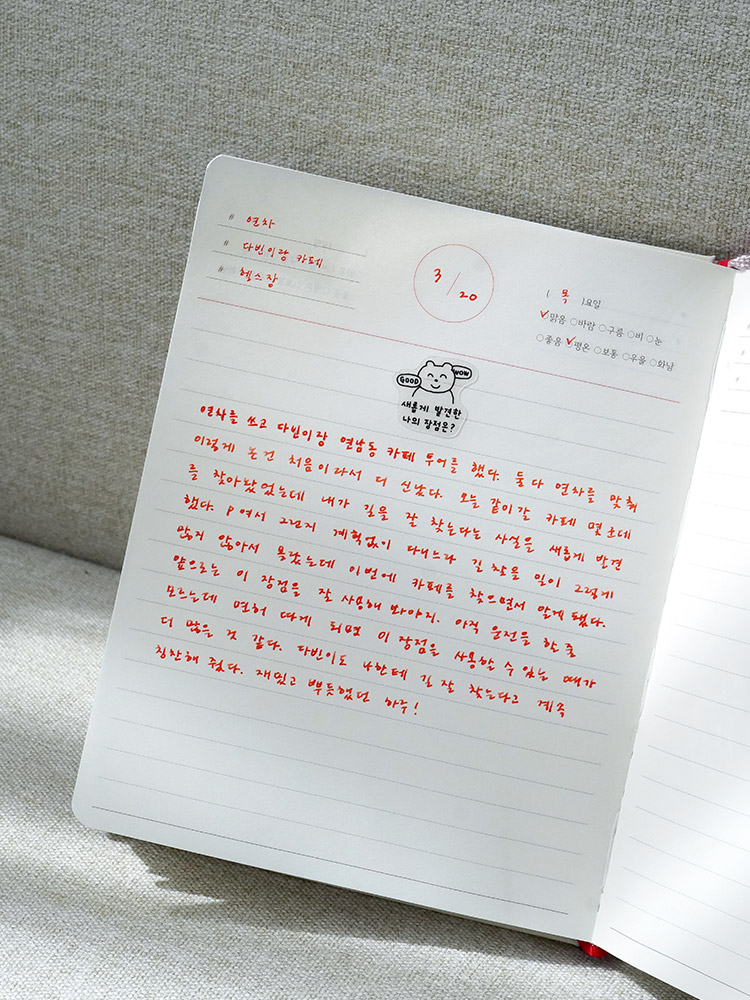 # 연차
# 다빈이랑 카페
# 헬스장
3/20
( 목 )요일
✓맑음 ○바람 ○구름 ○비 ○눈
○좋음 ✓평온 ○보통 ○우울 ○화남
GOOD WOW
새롭게 발견한
나의 장점은?
연차를 쓰고 다빈이랑 연남동 카페 투어를 했다. 둘다 연차를 맞춰
이렇게 노는건 처음이라서 더 신났다. 오늘 같이갈 카페 몇군데
를 찾아놨었는데 내가 길을 잘 찾는다는 사실을 새롭게 발견
했다. P여서 그런지 계획없이 다니느라 길 찾을 일이 그렇게
많지 않아서 몰랐는데 이번에 카페를 찾으면서 알게 됐다.
앞으로는 이 장점을 잘 사용해 봐야지. 아직 운전을 할 줄
모르는데 면허 따게 되면 이 장점을 사용할 수 있는 때가
더 많을 것 같다. 다빈이도 나한테 길 잘 찾는다고 계속
칭찬해 줬다. 재밌고 뿌듯했던 하루!